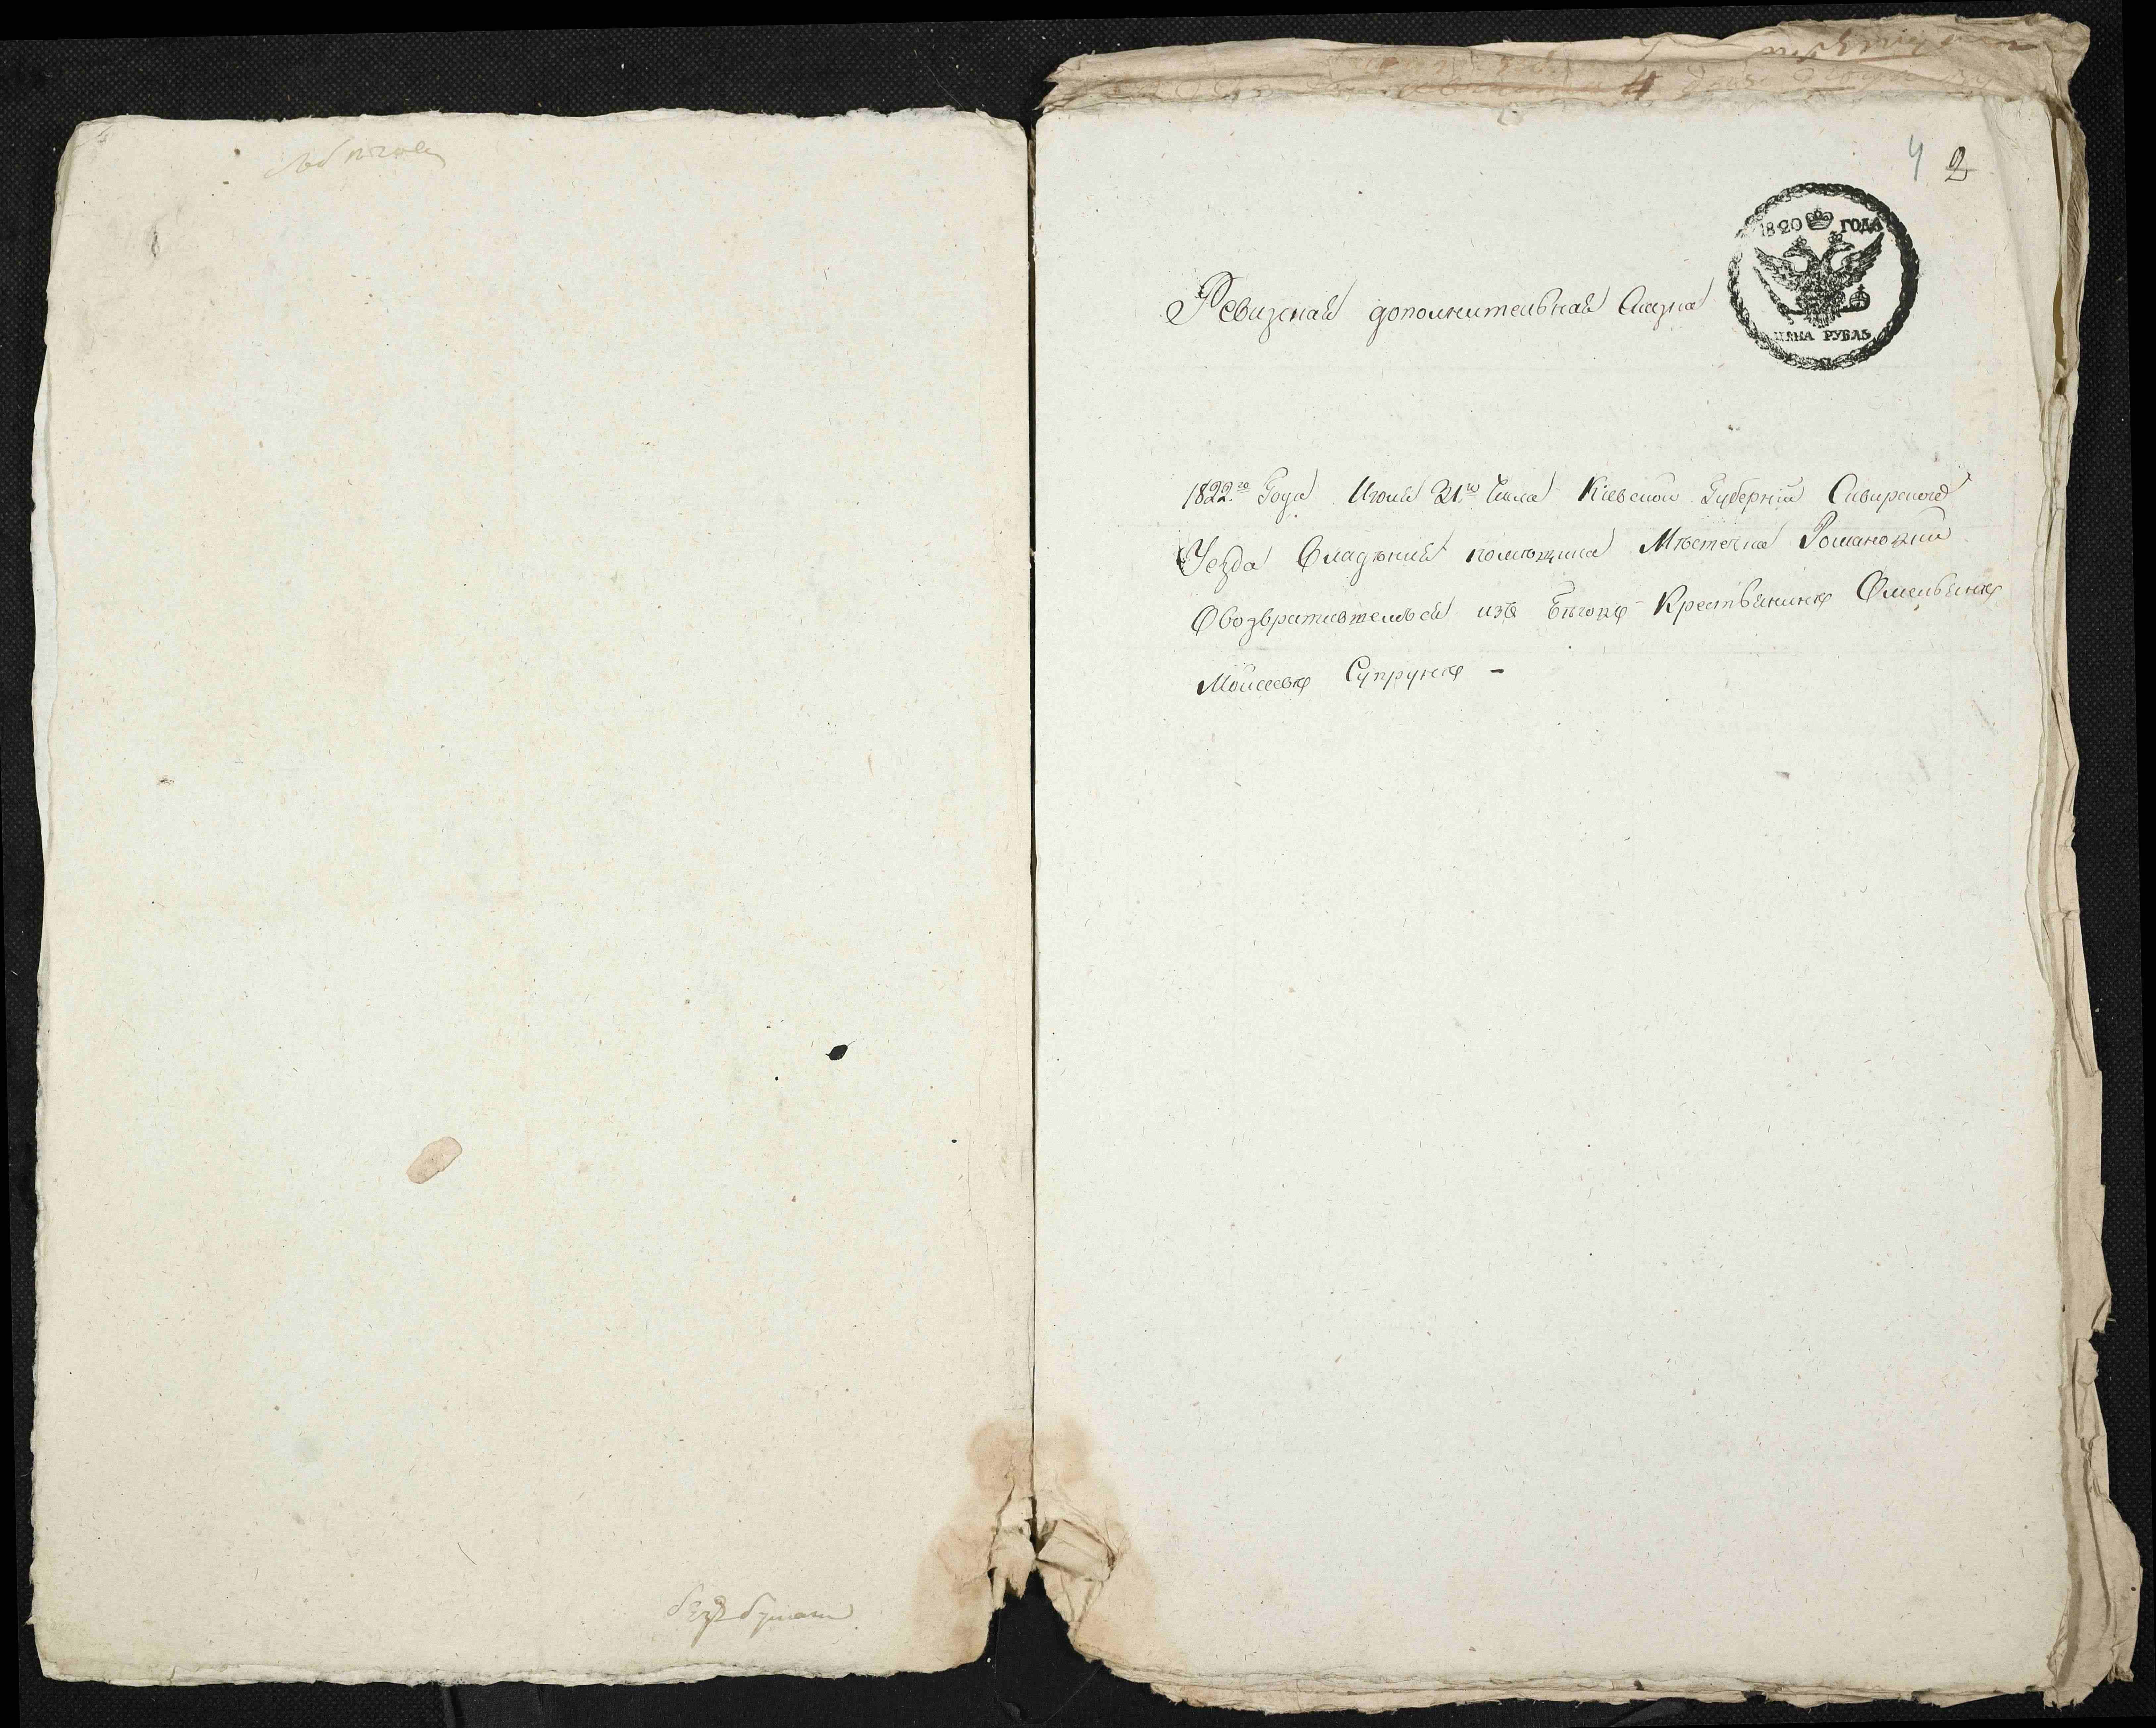 безъ бумаги
4 2
1820 ГОДА
ЦѢНА РУБЛЬ
Ревизская дополнительная Сказка
1822го Года Июля 21го Числа Кіевской Губерніи Сквирского
Уезда Владѣния помѣщика Мѣстечка Романовки
Овозвратившемъся изъ бѣговъ Крестьянинѣ Омельянѣ
Мойсеевѣ Супрунѣ -